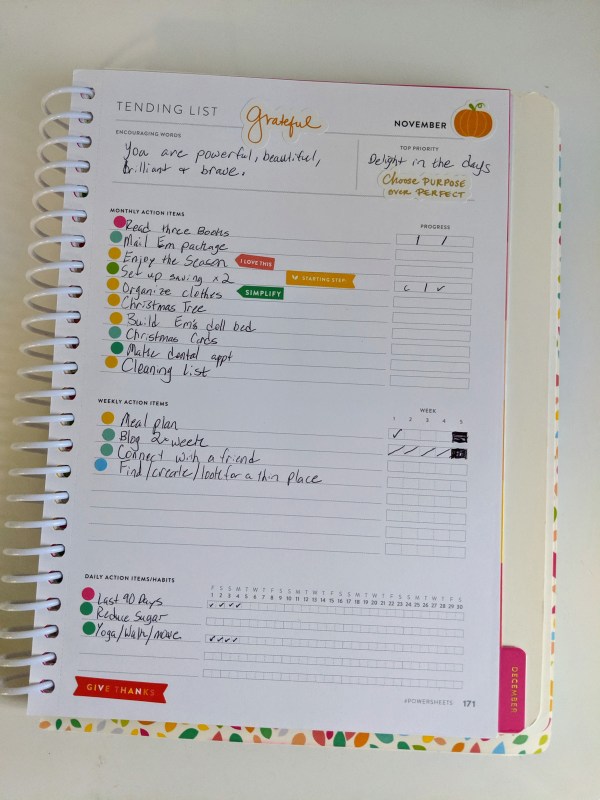 TENDING LIST
grateful
NOVEMBER
ENCOURAGING WORDS
You are powerful, beautiful,
brilliant & brave.
TOP PRIORITY
Delight in the days
CHOOSE PURPOSE
OVER PERFECT
MONTHLY ACTION ITEMS
PROGRESS
Read three Books
Mail Em package
Enjoy the Season
I LOVE THIS
Set up saving x2
STARTING STEP
Organize clothes
SIMPLIFY
Christmas Tree
Build Em's doll bed
Christmas Cards
Make dental appt
Cleaning List
WEEKLY ACTION ITEMS
WEEK
1 2 3 4 5
Meal plan
Blog 2x week
Connect with a friend
Find/create/look for a thin place
DAILY ACTION ITEMS/HABITS
F S S M T W T F S S M T W T F S S M T W T F S S M T W T F S
1 2 3 4 5 6 7 8 9 10 11 12 13 14 15 16 17 18 19 20 21 22 23 24 25 26 27 28 29 30
Last 90 Days
Reduce Sugar
Yoga/Walk/move
GIVE THANKS
#POWERSHEETS 171
DECEMBER